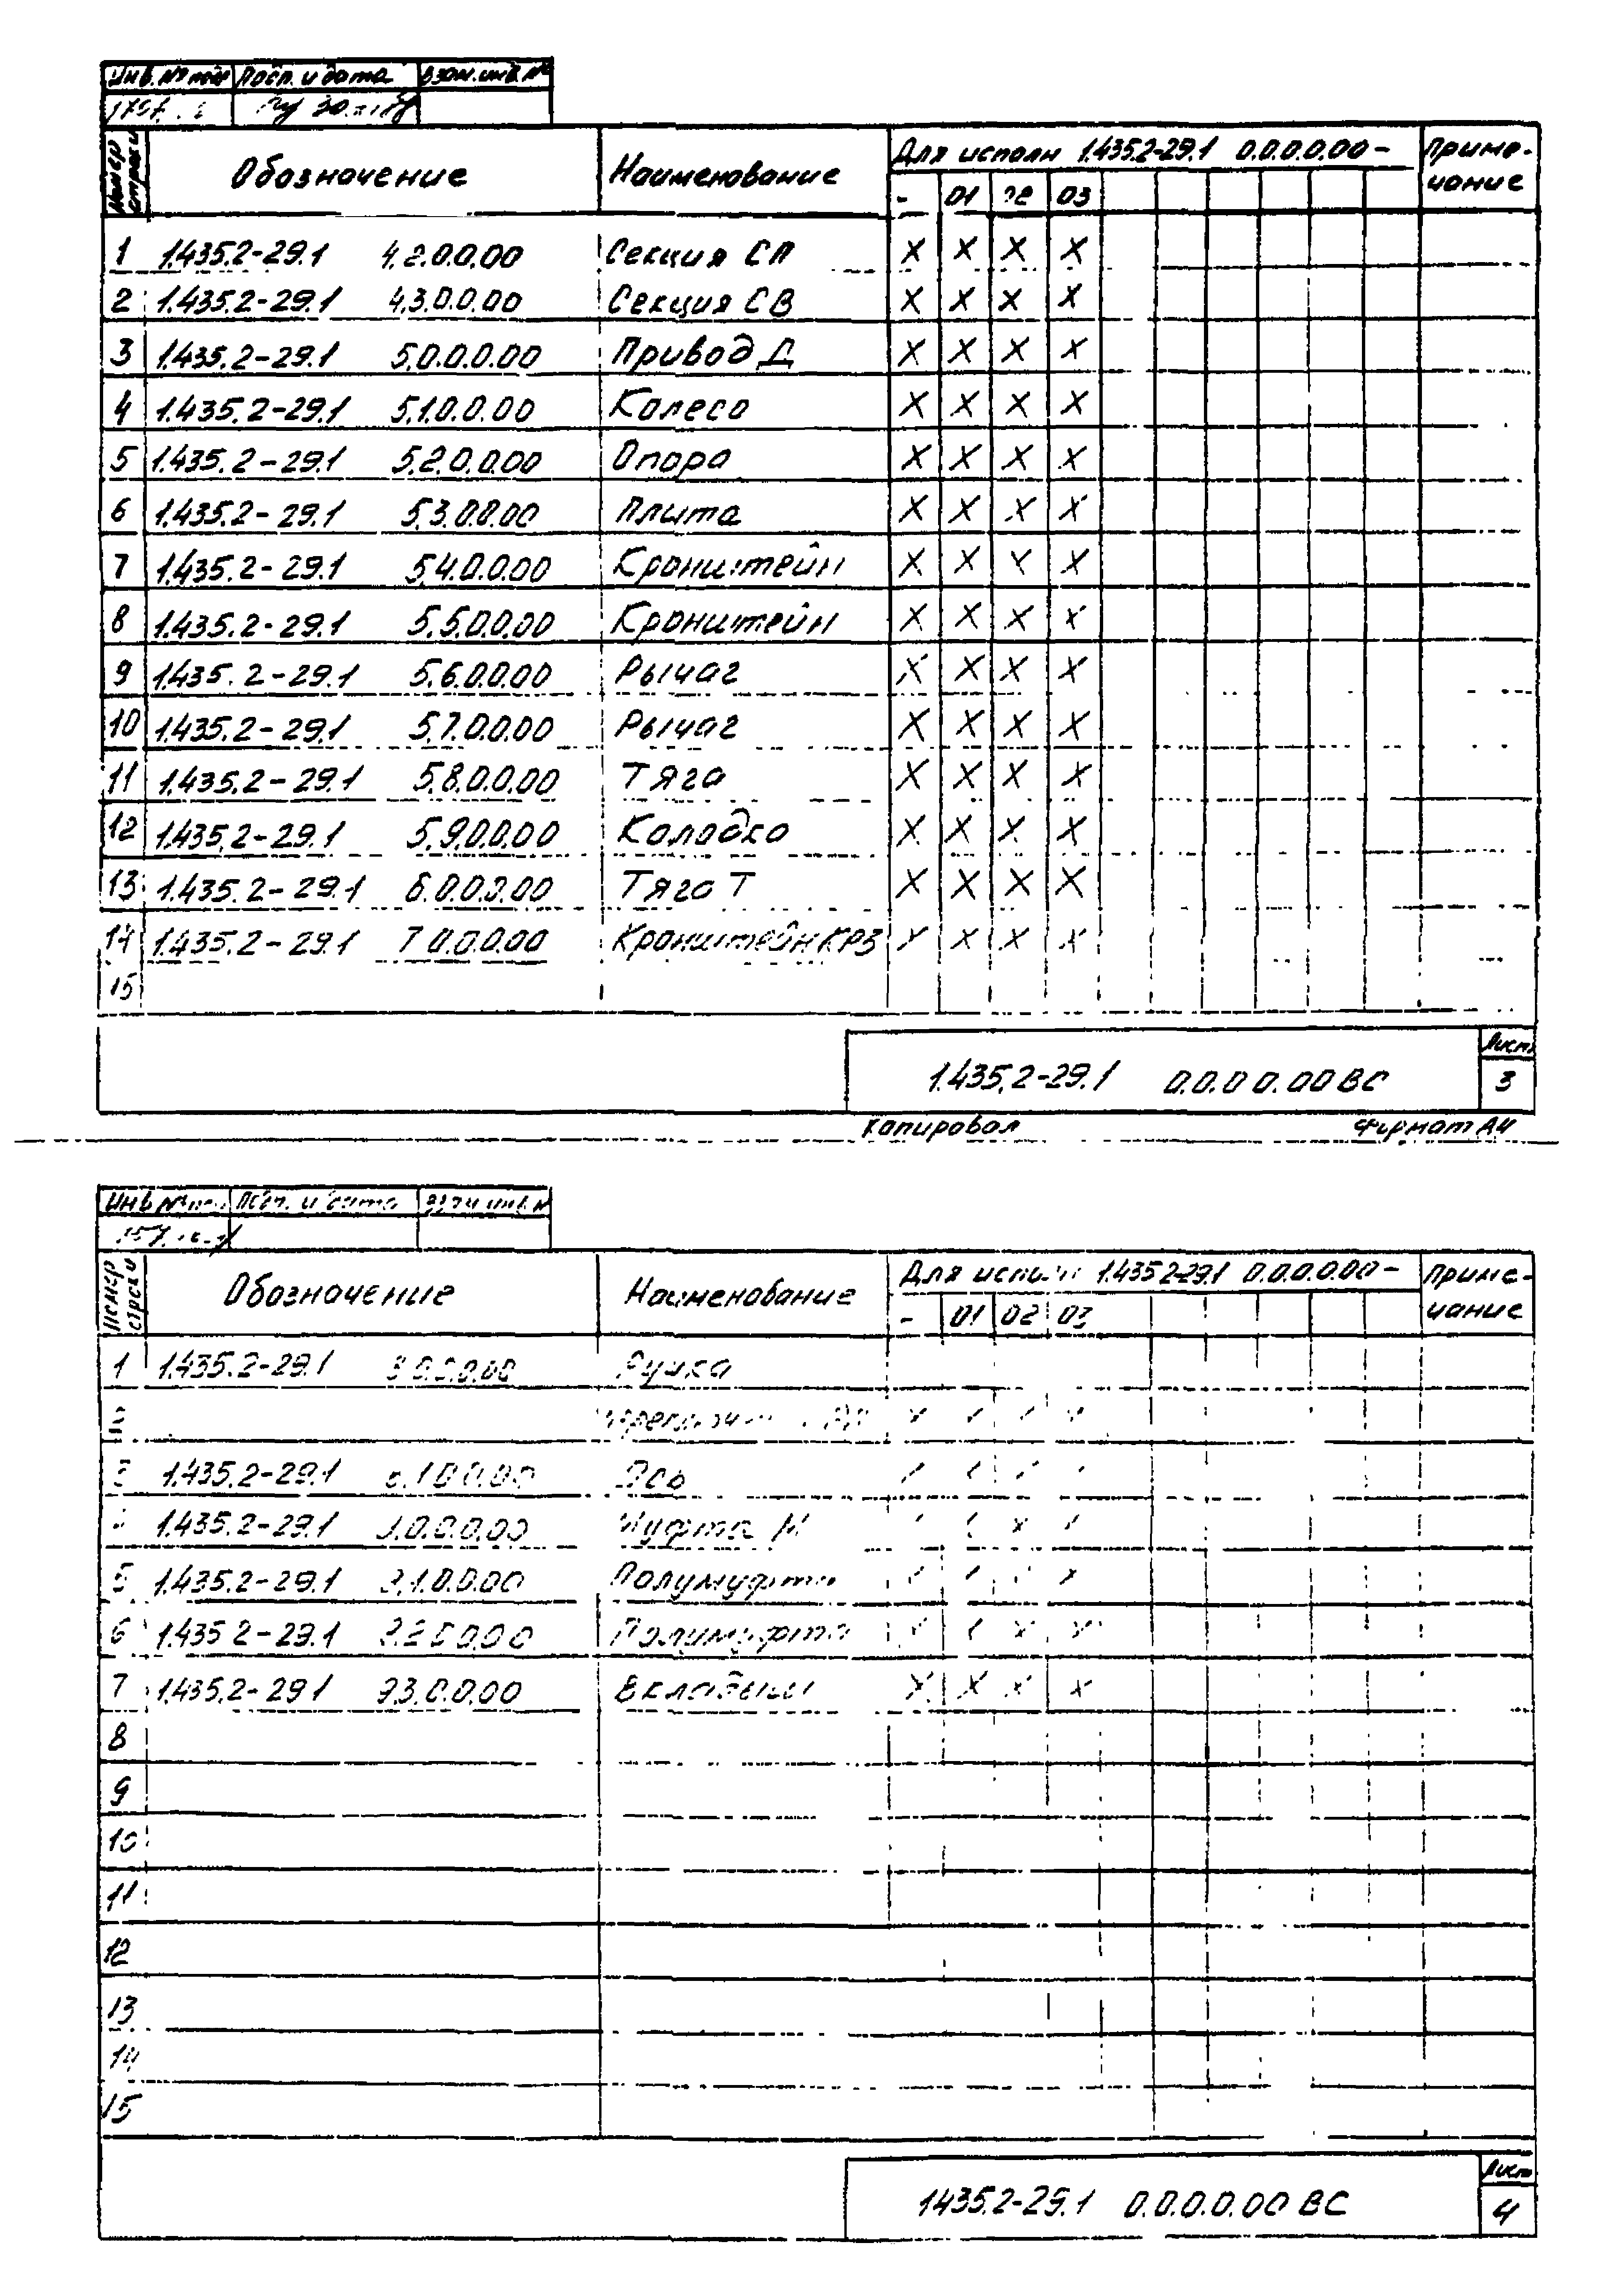 Инв. № подл Подп. и дата Взам. инв. №
Номер строки Обозначение Наименование Для исполн 1.435.2-29.1 0.0.0.0.00 - Приме-
чание
- 01 02 03
1 1.435.2-29.1 4.2.0.0.00 Секция СП X X X X
2 1.435.2-29.1 4.3.0.0.00 Секция СВ X X X X
3 1.435.2-29.1 5.0.0.0.00 Привод Д X X X X
4 1.435.2-29.1 5.1.0.0.00 Колесо X X X X
5 1.435.2-29.1 5.2.0.0.00 Опора X X X X
6 1.435.2-29.1 5.3.0.0.00 Плита X X X X
7 1.435.2-29.1 5.4.0.0.00 Кронштейн X X X X
8 1.435.2-29.1 5.5.0.0.00 Кронштейн X X X X
9 1.435.2-29.1 5.6.0.0.00 Рычаг X X X X
10 1.435.2-29.1 5.7.0.0.00 Рычаг X X X X
11 1.435.2-29.1 5.8.0.0.00 Тяга X X X X
12 1.435.2-29.1 5.9.0.0.00 Колодка X X X X
13 1.435.2-29.1 6.0.0.0.00 Тяга Т X X X X
14 1.435.2-29.1 7.0.0.0.00 Кронштейн КР3 X X X X
15
1.435.2-29.1 0.0.0.0.00 ВС Лист
3
Копировал Формат А4
Инв. № подл Подп. и дата Взам. инв. №
Номер строки Обозначение Наименование Для исполн 1.435.2-29.1 0.0.0.0.00 - Приме-
чание
- 01 02 03
1 1.435.2-29.1 Ручка
2 X X X X
3 1.435.2-29.1 Ось
4 1.435.2-29.1 Муфта М
5 1.435.2-29.1 9.1.0.0.00 Полумуфта
6 1.435.2-29.1 9.2.0.0.00 Полумуфта X X X X
7 1.435.2-29.1 9.3.0.0.00 Вкладыш X X X X
8
9
10
11
12
13
14
15
1.435.2-29.1 0.0.0.0.00 ВС Лист
4